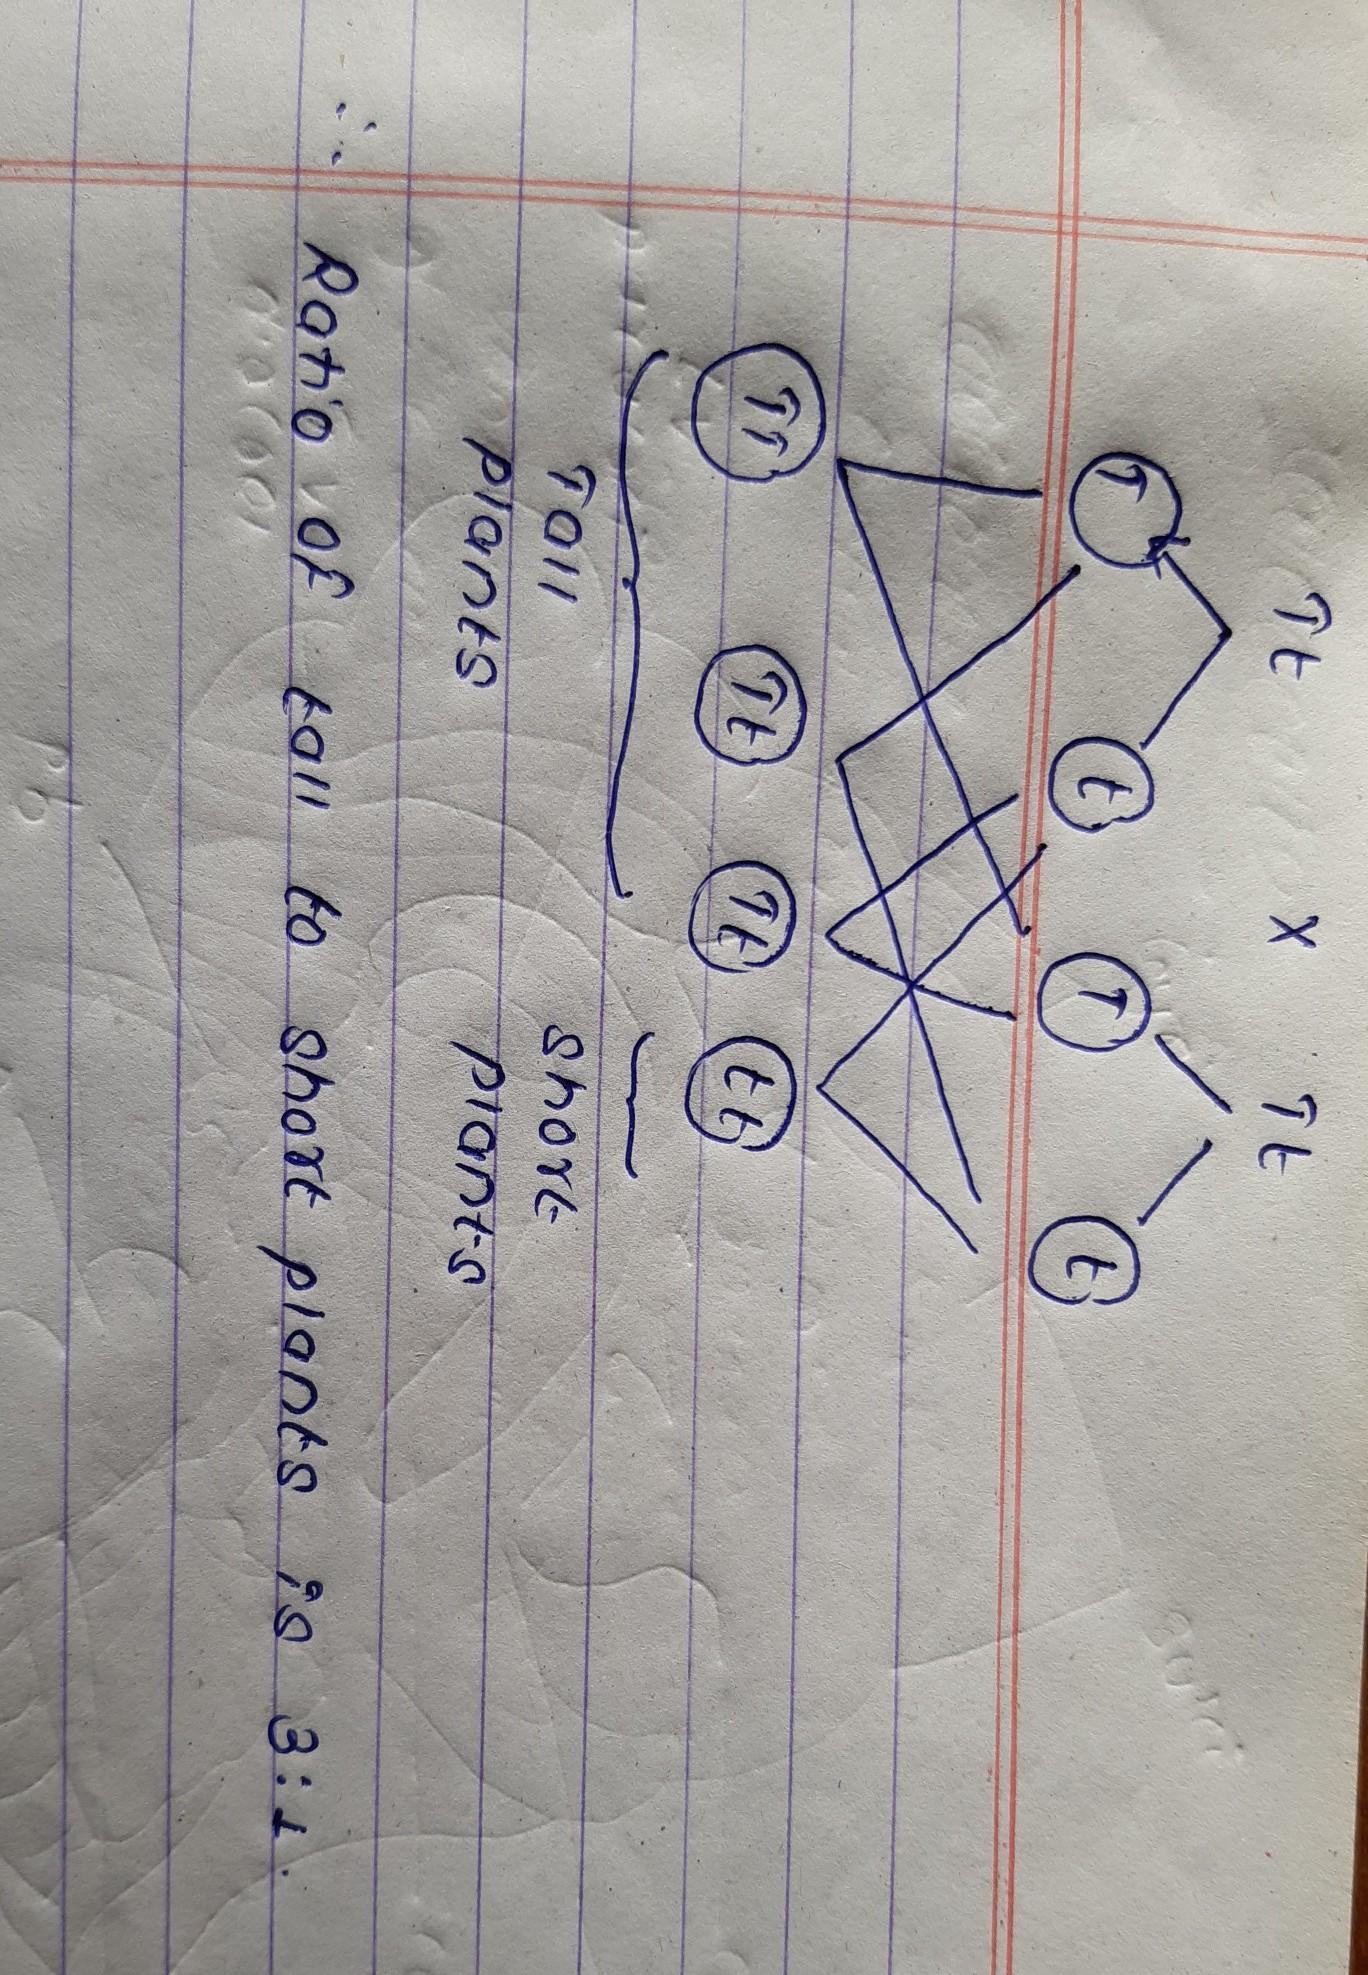 Tt x Tt
T t T t
TT Tt Tt tt
Tall short
plants plants
∴ Ratio of tall to short plants is 3:1.